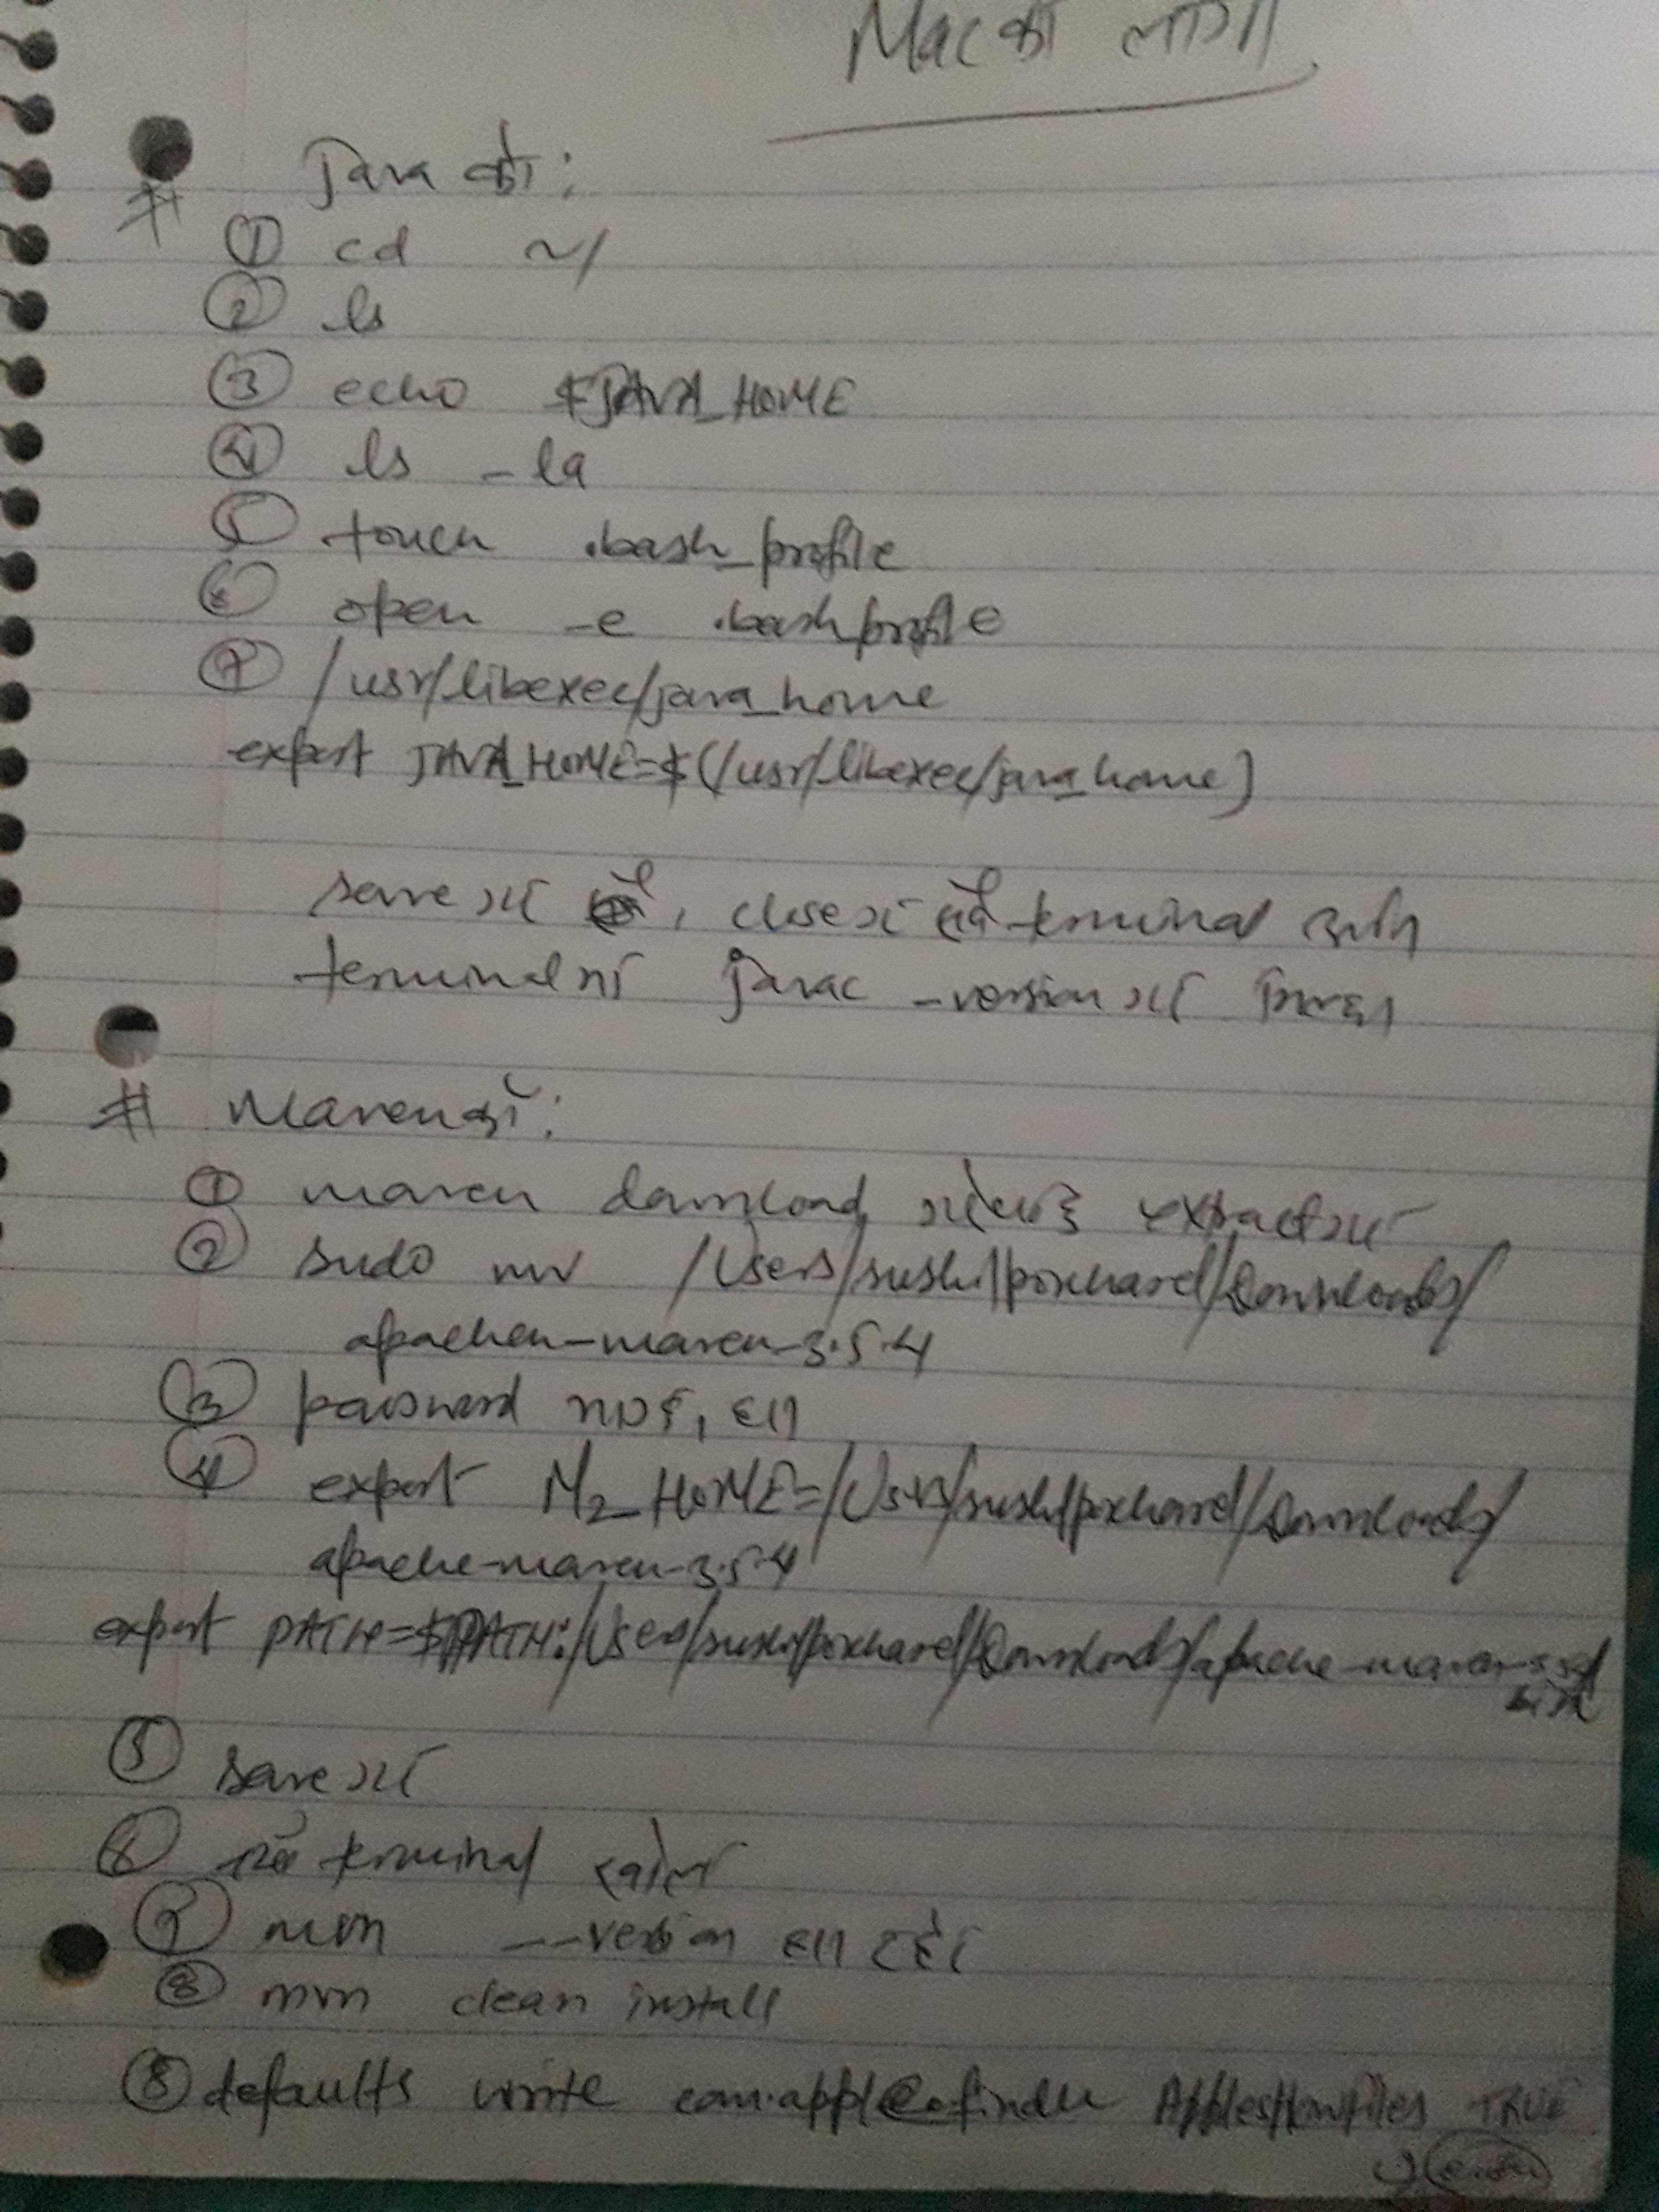 Mac को लागि
# Java को:
① cd ~/
② ls
③ echo $JAVA_HOME
④ ls -la
⑤ touch .bash_profile
⑥ open -e .bashprofile
⑦ /usr/libexec/java_home
export JAVA_HOME=$(/usr/libexec/java_home)
save गर्ने, close गर्ने terminal अनि
terminal मा javac -version गर्ने
# Maven को:
① maven download गरेर extract गर्ने
② sudo mv /Users/sushilpokharel/Downloads/
apachen-maven-3.5.4
③ password
④ export M2_HOME=/Users/sushilpokharel/Downloads/
apache-maven-3.5.4
export PATH=$PATH:/Users/sushilpokharel/Downloads/apache-maven-3.5.4/
bin
⑤ save गर्ने
⑥ terminal
⑦ mvn --version
⑧ mvn clean install
⑧ defaults write com.apple.finder AppleShowFiles TRUE